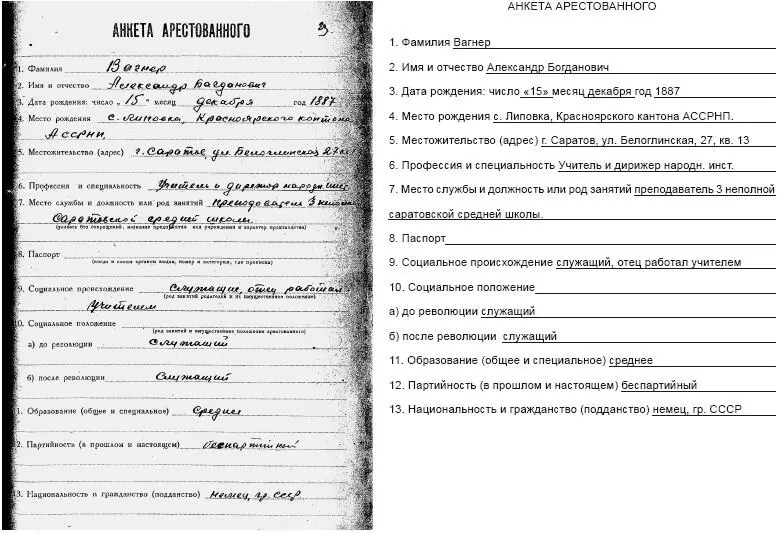 АНКЕТА АРЕСТОВАННОГО
1. Фамилия Вагнер
2. Имя и отчество Александр Багданович
3. Дата рождения: число „15" месяц декабря год 1887
4. Место рождения с. Липовка, Красноярского кантона
АССРНП.
5. Местожительство (адрес) г. Саратов, ул. Белоглинская 27
6. Профессия и специальность Учитель и дирижор народн. инст.
7. Место службы и должность или род занятий преподаватель 3 неполн
Саратовской средней школы.
(указать без сокращений, название предприятия или учреждения и характер производства)
8. Паспорт
(когда и каким органом выдан, номер и категория, где прописан)
9. Социальное происхождение служащие, отец работал
(род занятий родителей и их имущественное положение)
учителем
10. Социальное положение
(род занятий и имущественное положение арестованного)
а) до революции служащий
б) после революции служащий
1. Образование (общее и специальное) среднее
2. Партийность (в прошлом и настоящем) беспартийный
3. Национальность и гражданство (подданство) немец, гр. СССР
АНКЕТА АРЕСТОВАННОГО
1. Фамилия Вагнер
2. Имя и отчество Александр Богданович
3. Дата рождения: число «15» месяц декабря год 1887
4. Место рождения с. Липовка, Красноярского кантона АССРНП.
5. Местожительство (адрес) г. Саратов, ул. Белоглинская, 27, кв. 13
6. Профессия и специальность Учитель и дирижер народн. инст.
7. Место службы и должность или род занятий преподаватель 3 неполной
саратовской средней школы.
8. Паспорт
9. Социальное происхождение служащий, отец работал учителем
10. Социальное положение
а) до революции служащий
б) после революции служащий
11. Образование (общее и специальное) среднее
12. Партийность (в прошлом и настоящем) беспартийный
13. Национальность и гражданство (подданство) немец, гр. СССР